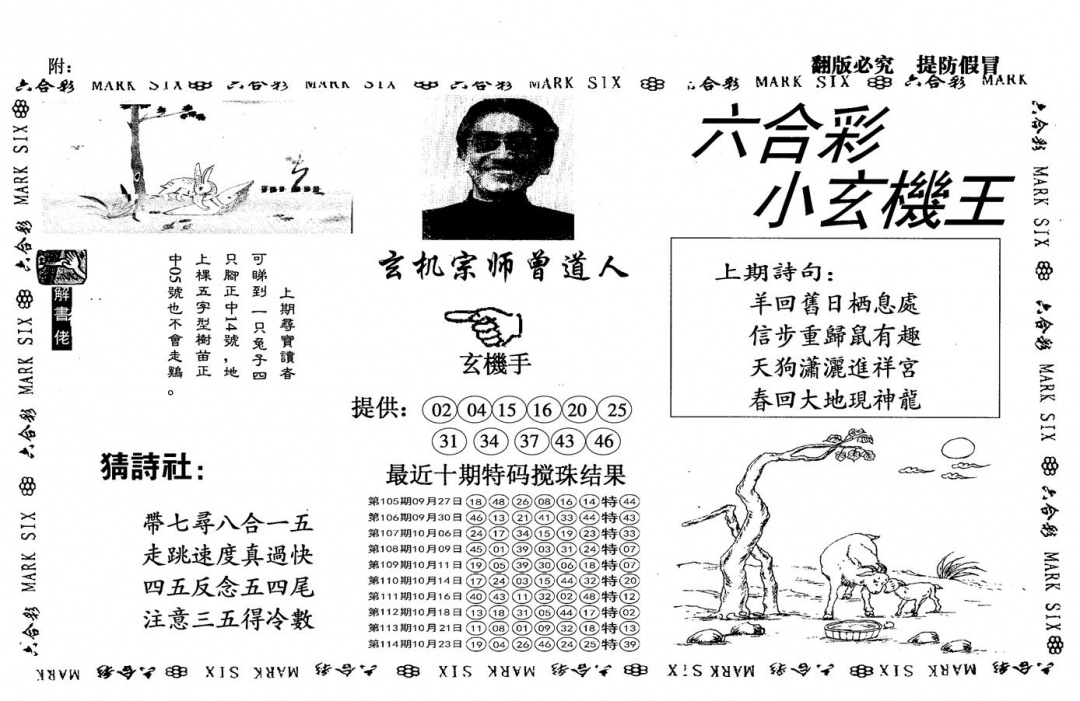 附：
翻版必究 提防假冒
六合彩 MARK SIX 六合彩 MARK SIX 六合彩 MARK SIX 六合彩 MARK SIX 六合彩 MARK
六合彩
小玄機王
玄机宗师曾道人
玄機手
提供： 02 04 15 16 20 25
31 34 37 43 46
最近十期特码搅珠结果
第105期09月27日 18 48 26 08 16 14 特 44
第106期09月30日 46 13 21 41 33 44 特 43
第107期10月06日 24 17 34 15 19 23 特 33
第108期10月09日 45 01 39 03 31 24 特 07
第109期10月11日 19 05 39 30 06 18 特 07
第110期10月14日 17 24 03 15 44 32 特 20
第111期10月16日 40 43 11 32 02 48 特 12
第112期10月18日 13 18 31 05 44 17 特 02
第113期10月21日 11 08 01 09 32 18 特 13
第114期10月23日 19 04 26 46 24 25 特 39
解書佬
上期尋寶讀者
可睇到一只兔子四
只腳正中14號，地
上棵五字型樹苗正
中05號也不會走鷄。
猜詩社：
帶七尋八合一五
走跳速度真過快
四五反念五四尾
注意三五得冷數
上期詩句：
羊回舊日栖息處
信步重歸鼠有趣
天狗瀟灑進祥宮
春回大地現神龍
六合彩 MARK SIX 六合彩 MARK SIX 六合彩 MARK SIX 六合彩
六合彩 MARK SIX 六合彩 MARK SIX 六合彩 MARK SIX
MARK 六合彩 SIX MARK 六合彩 SIX MARK 六合彩 SIX MARK 六合彩 SIX MARK 六合彩